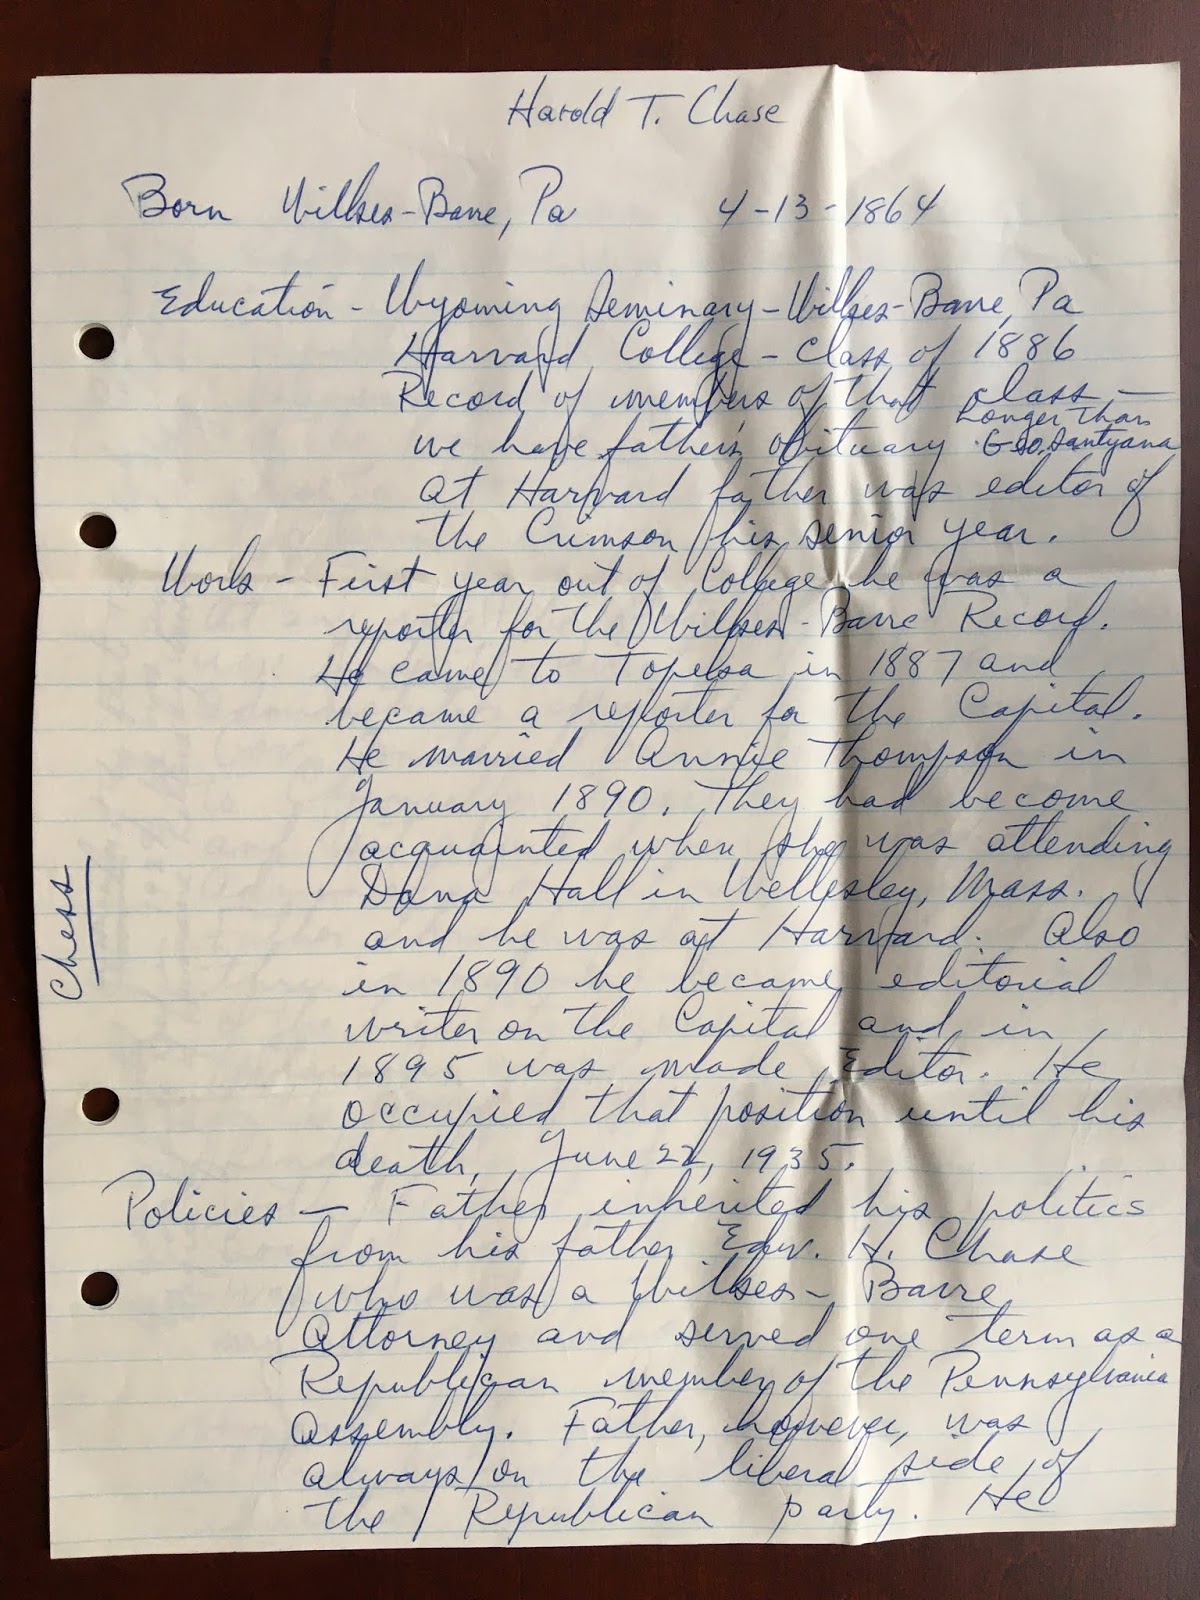 Harold T. Chase
Born Wilkes-Barre, Pa 4-13-1864
Education - Wyoming Seminary - Wilkes-Barre, Pa
Harvard College - class of 1886
Record of members of that class -
we have father's obituary longer than Geo. Santyana
At Harvard father was editor of
the Crimson his senior year.
Work - First year out of College he was a
reporter for the Wilkes-Barre Record.
He came to Topeka in 1887 and
became a reporter for the Capital.
He married Annie Thompson in
January 1890. They had become
acquainted when she was attending
Dana Hall in Wellesley, Mass.
and he was at Harvard. Also
in 1890 he became editorial
writer on the Capital and in
1895 was made Editor. He
occupied that position until his
death, June 22, 1935.
Policies - Father inherited his politics
from his father Edw. H. Chase
who was a Wilkes-Barre
Attorney and served one term as a
Republican member of the Pennsylvania
Assembly. Father, however, was
always on the liberal side of
the Republican party. He
Chess